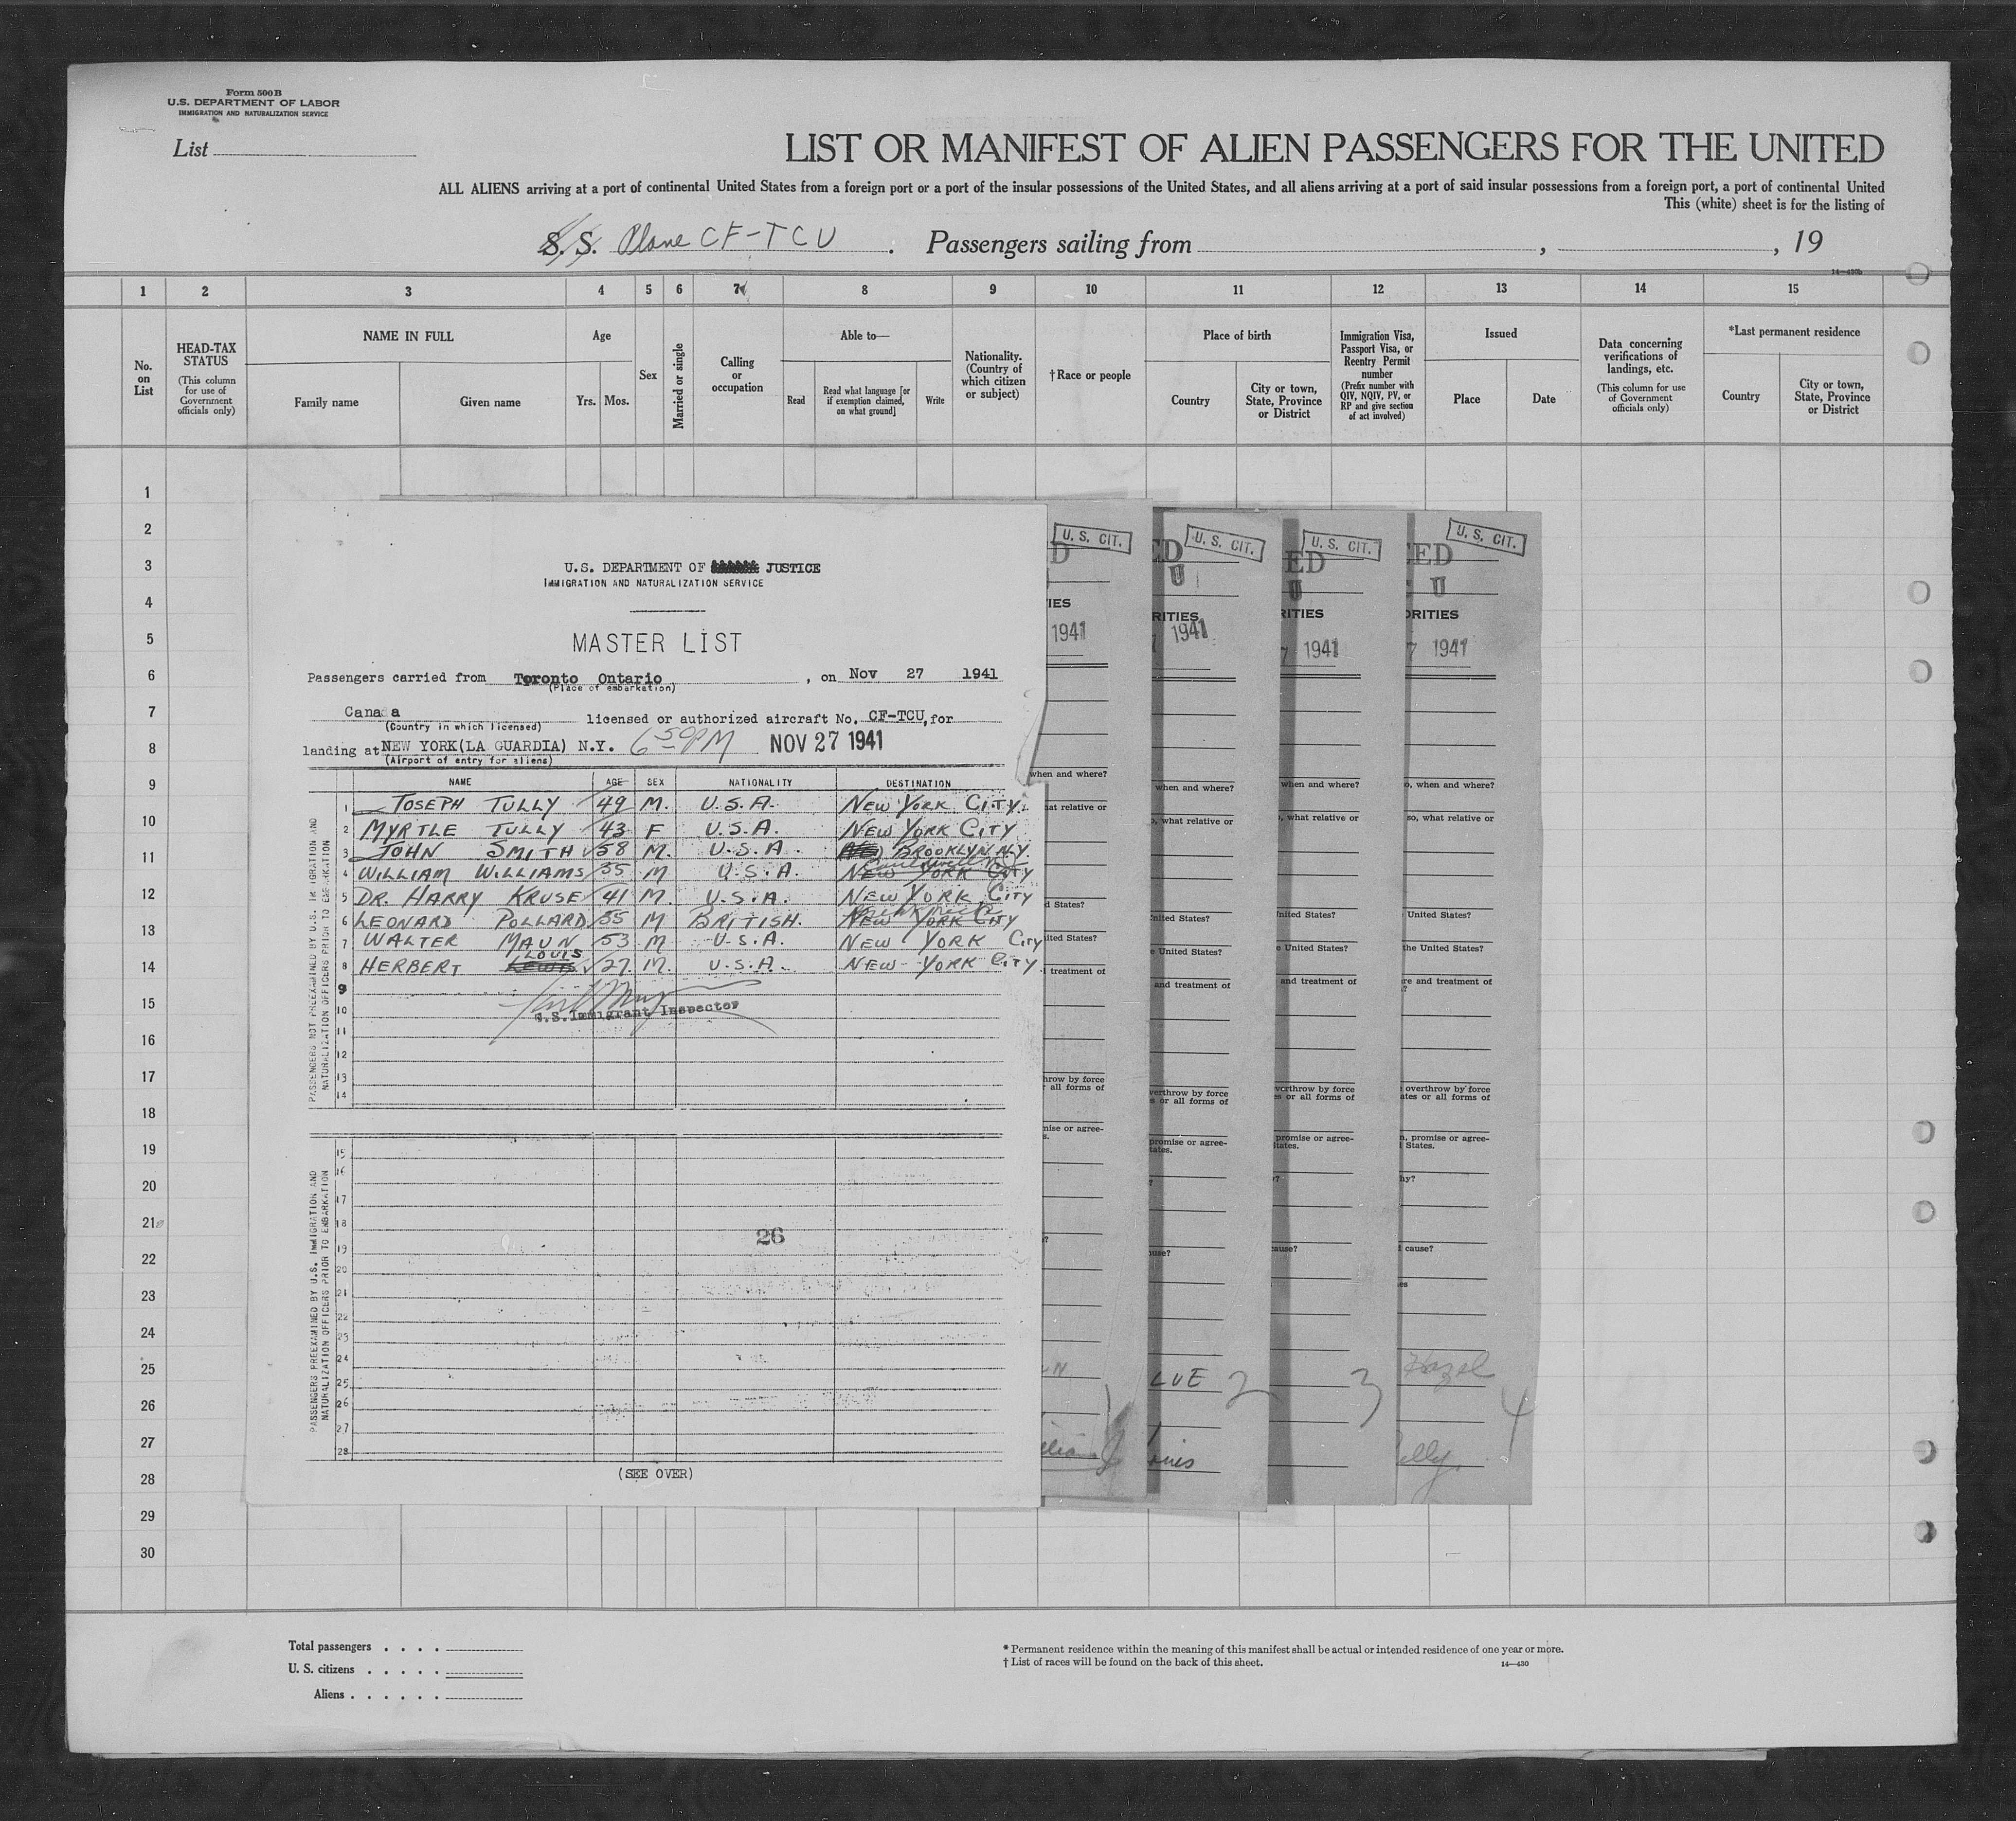 Form 500 B
U.S. DEPARTMENT OF LABOR
IMMIGRATION AND NATURALIZATION SERVICE
List
LIST OR MANIFEST OF ALIEN PASSENGERS FOR THE UNITED
ALL ALIENS arriving at a port of continental United States from a foreign port or a port of the insular possessions of the United States, and all aliens arriving at a port of said insular possessions from a foreign port, a port of continental United
This (white) sheet is for the listing of
S. S. Plane CF-TCU . Passengers sailing from , , 19
14—430b
1 2 3 4 5 6 7 8 9 10 11 12 13 14 15
No. on List
HEAD-TAX STATUS
(This column for use of Government officials only)
NAME IN FULL
Family name Given name
Age
Yrs. Mos.
Sex
Married or single
Calling or occupation
Able to—
Read
Read what language [or if exemption claimed, on what ground]
Write
Nationality. (Country of which citizen or subject)
†Race or people
Place of birth
Country
City or town, State, Province or District
Immigration Visa, Passport Visa, or Reentry Permit number
(Prefix number with QIV, NQIV, PV, or RP and give section of act involved)
Issued
Place Date
Data concerning verifications of landings, etc.
(This column for use of Government officials only)
*Last permanent residence
Country
City or town, State, Province or District
1
2
3
4
5
6
7
8
9
10
11
12
13
14
15
16
17
18
19
20
21
22
23
24
25
26
27
28
29
30
U.S. DEPARTMENT OF JUSTICE
IMMIGRATION AND NATURALIZATION SERVICE
MASTER LIST
Passengers carried from Toronto Ontario , on Nov 27 1941
(Place of embarkation)
Canada licensed or authorized aircraft No. CF-TCU, for
(Country in which licensed)
landing at NEW YORK (LA GUARDIA) N.Y. 6 50 PM NOV 27 1941
(Airport of entry for aliens)
NAME AGE SEX NATIONALITY DESTINATION
PASSENGERS NOT PREEXAMINED BY U.S. IMMIGRATION AND
NATURALIZATION OFFICERS PRIOR TO EMBARKATION
1 JOSEPH TULLY 49 M. U.S.A. NEW YORK CITY.
2 MYRTLE TULLY 43 F U.S.A. NEW YORK CITY
3 JOHN SMITH 58 M. U.S.A. BROOKLYN N.Y.
4 WILLIAM WILLIAMS 35 M U.S.A. NEW YORK CITY
5 DR. HARRY KRUSE 41 M. U.S.A. NEW YORK CITY
6 LEONARD POLLARD 35 M BRITISH. NEW YORK CITY
7 WALTER MAUN 53 M U.S.A. NEW YORK CITY
LOUIS
8 HERBERT LEWIS 27 M. U.S.A. NEW YORK CITY
9
10
U.S. Immigrant Inspector
11
12
13
14
PASSENGERS PREEXAMINED BY U.S. IMMIGRATION AND
NATURALIZATION OFFICERS PRIOR TO EMBARKATION
15
16
17
18
26
19
20
21
22
23
24
25
26
27
28
(SEE OVER)
U. S. CIT.
D
IES
1941
when and where?
hat relative or
d States?
ited States?
l treatment of
hrow by force
all forms of
mise or agree-
s.
U. S. CIT.
ED
U
RITIES
1941
when and where?
, what relative or
nited States?
e United States?
and treatment of
verthrow by force
s or all forms of
promise or agree-
tates.
use?
LUE 2
U. S. CIT.
ED
U
RITIES
7 1941
when and where?
, what relative or
nited States?
e United States?
and treatment of
verthrow by force
es or all forms of
promise or agree-
tates.
ause?
3
U. S. CIT.
ED
U
ORITIES
7 1941
o, when and where?
so, what relative or
United States?
the United States?
re and treatment of
overthrow by force
ates or all forms of
n, promise or agree-
States.
hy?
cause?
es
Hazel
4
Total passengers . . . .
U. S. citizens . . . . .
Aliens . . . . . .
* Permanent residence within the meaning of this manifest shall be actual or intended residence of one year or more.
† List of races will be found on the back of this sheet.
14—430